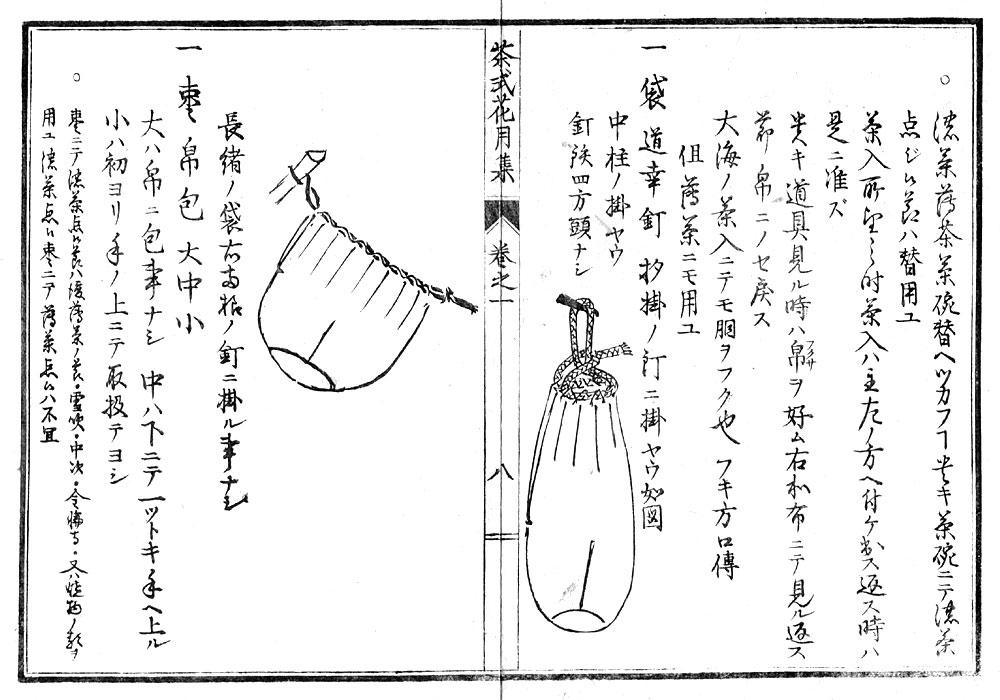 ○ 濃茶薄茶茶碗替ヘツカフヿ 貴キ茶碗ニテ濃茶
点ジル節ハ替用ユ
茶入所望之時茶入ハ主左ノ方ヘ付ケ出ス返ス時ハ
是ニ准ズ
貴キ道具見ル時ハ帛ヲ好ム右和布ニテ見ル返ス
節帛ニノセ戻ス
大海ノ茶入ニテモ胴ヲフク也 フキ方口傳
但薄茶ニモ用ユ
一 袋 道幸釘 抄掛ノ釘ニ掛ヤウ如図
中柱ノ掛ヤウ
釘 四方頭ナシ
茶式花月集 巻之一 八
長緒ノ袋右両 ノ釘ニ掛ル事ナシ
一 棗ノ帛包 大中小
大ハ帛ニ包事ナシ 中ハ下ニテ一ツトキ手ヘ上ル
小ハ初ヨリ手ノ上ニテ取扱テヨシ
○ 棗ニテ濃茶点ル節ハ後薄茶ノ節・雪吹・中次・金輪寺・又ハ 物ノ類ヲ
用ユ 濃茶点ル棗ニテ薄茶点ルハ不宜